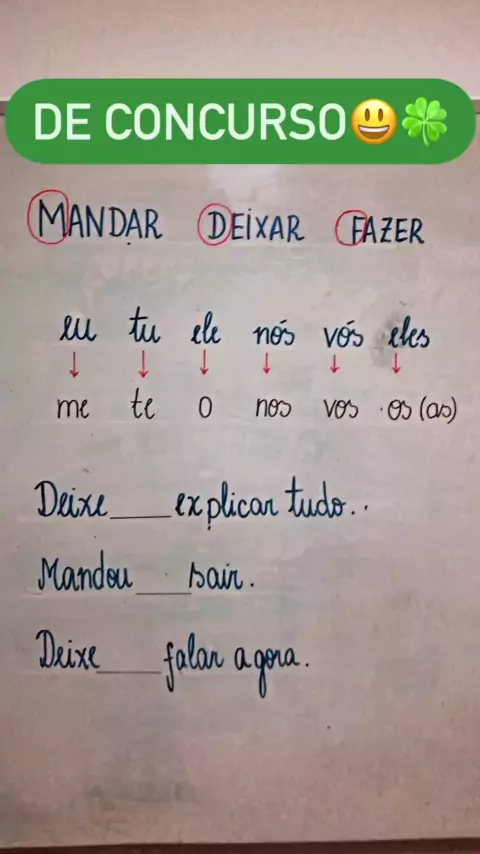 DE CONCURSO😃🍀
MANDAR DEIXAR FAZER
eu tu ele nós vós eles
↓ ↓ ↓ ↓ ↓ ↓
me te o nos vos os (as)
Deixe____explicar tudo..
Mandou____sair.
Deixe____falar agora.